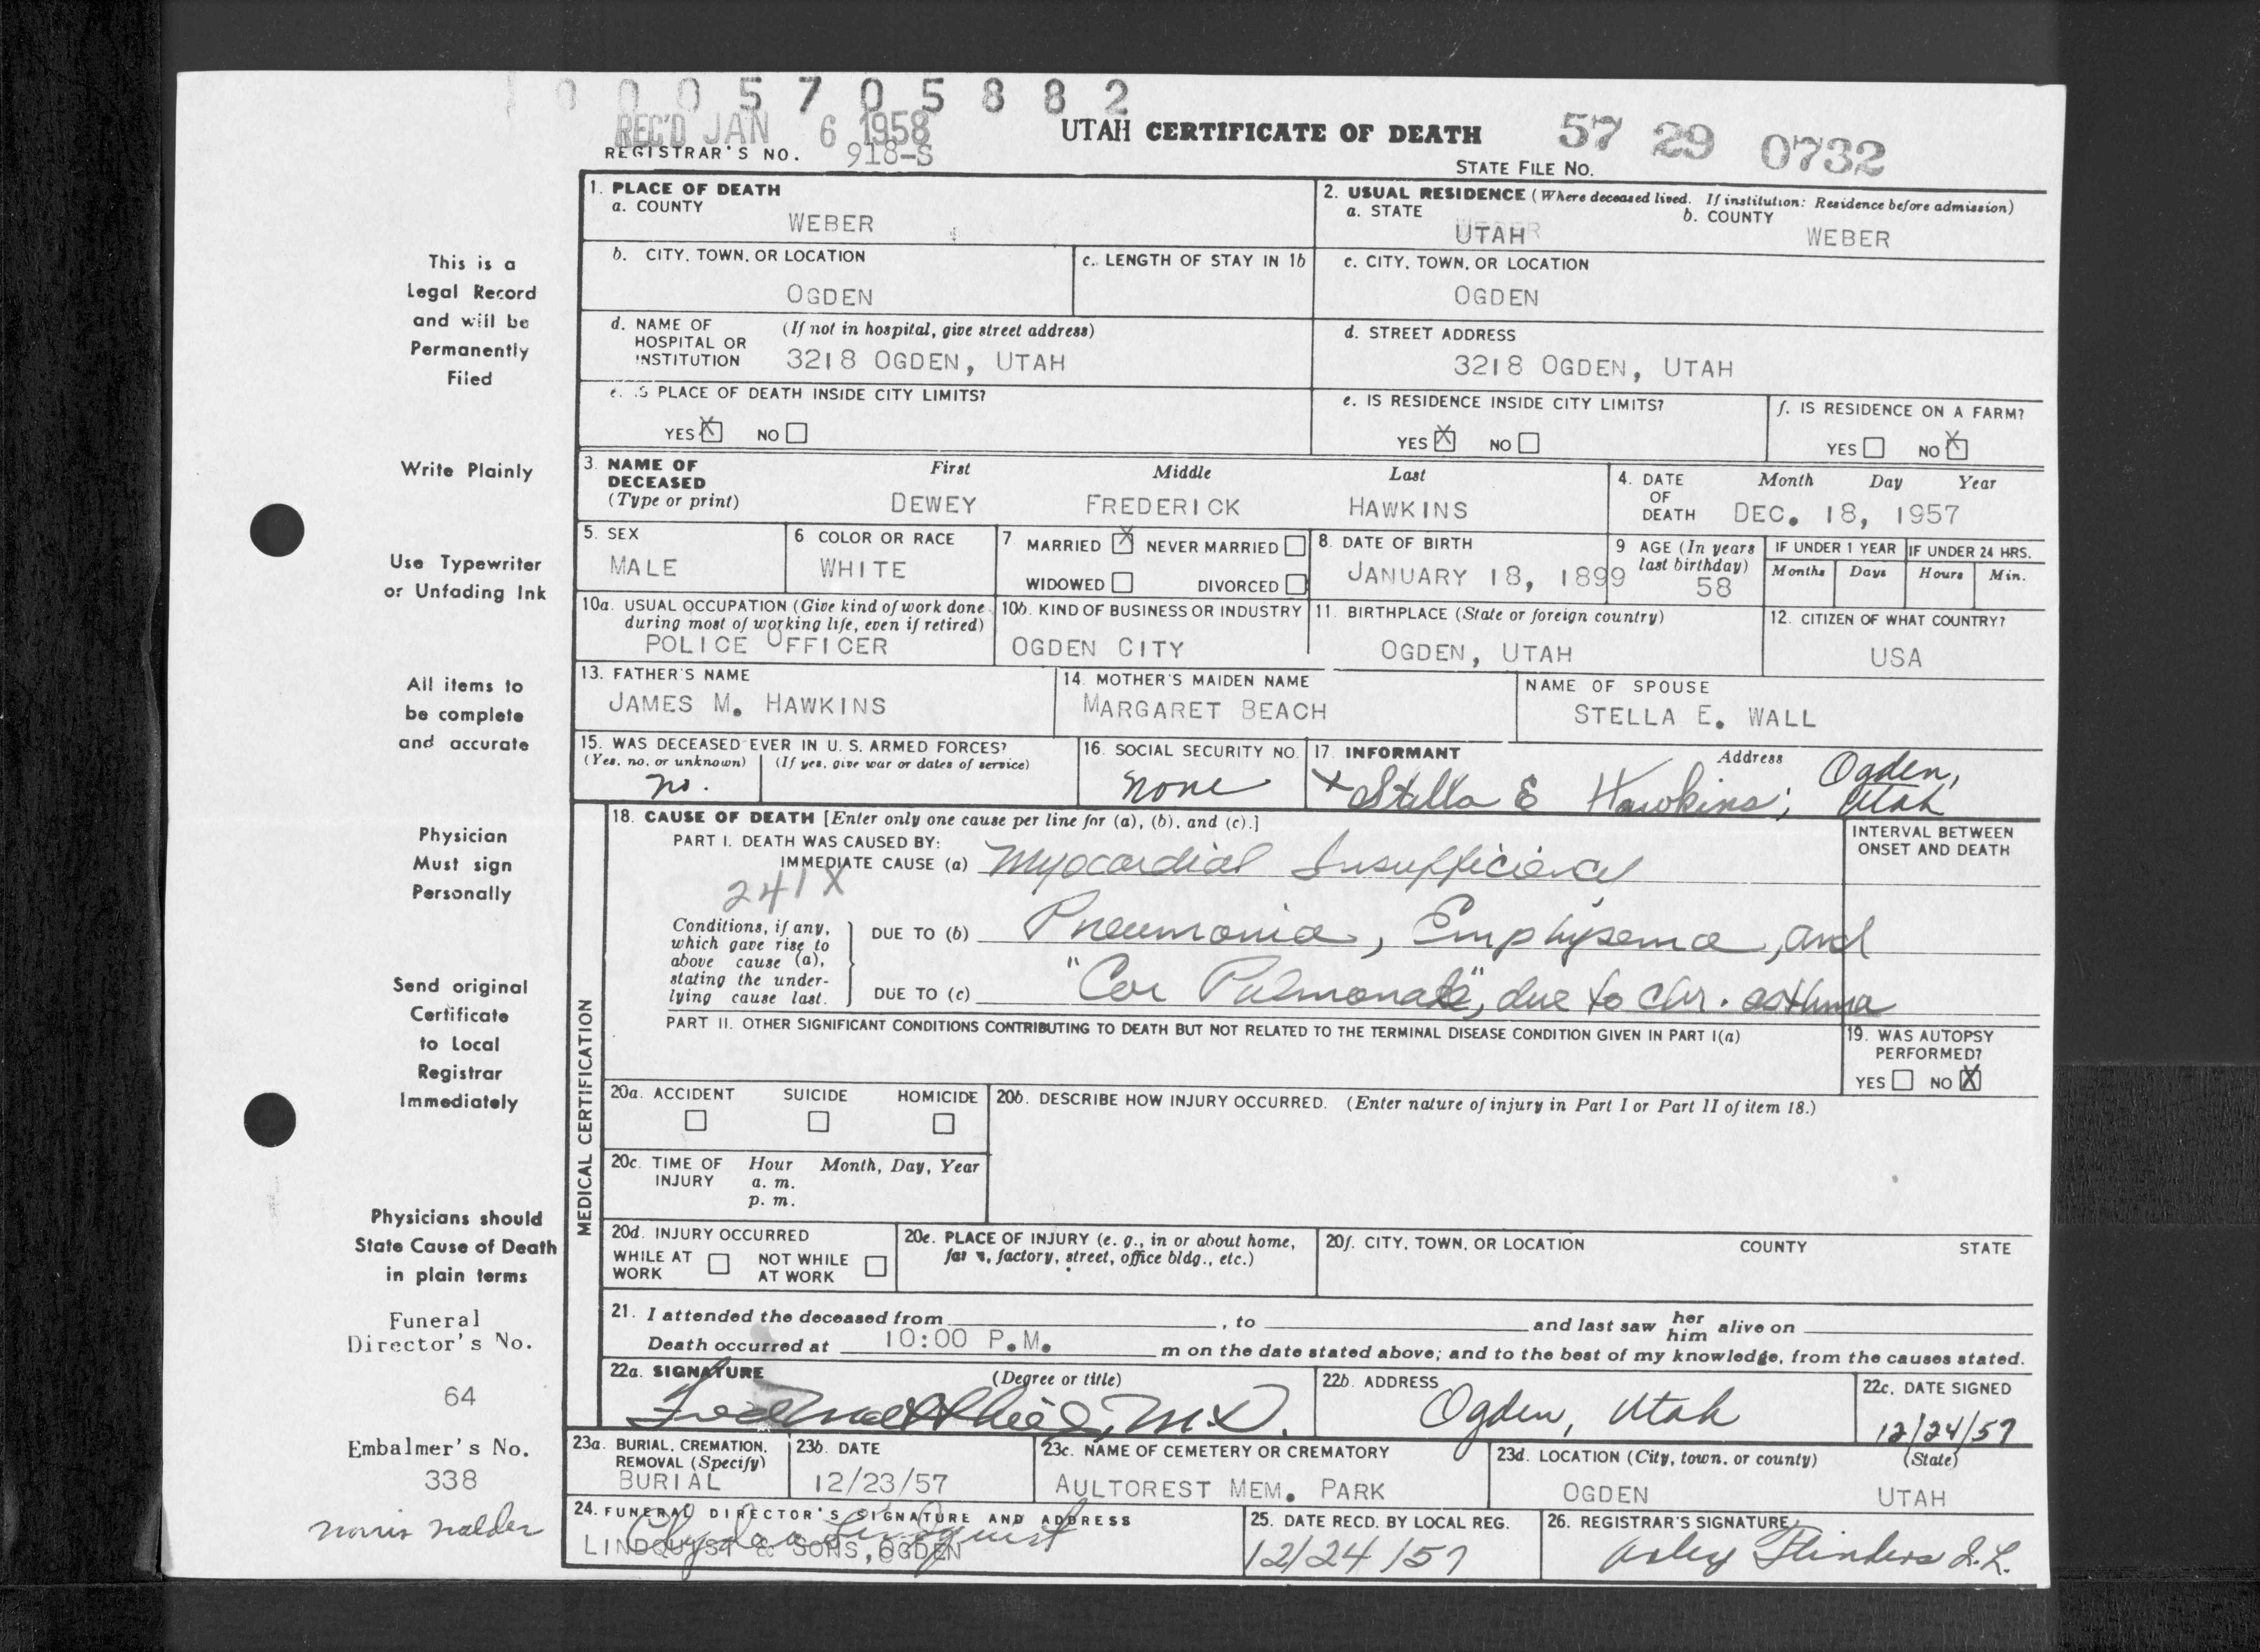 0 0 0 5 7 0 5 8 8 2
REC'D JAN 6 1958
UTAH CERTIFICATE OF DEATH
57 29 0732
REGISTRAR'S NO. 918-S
STATE FILE NO.
1. PLACE OF DEATH
a. COUNTY
WEBER
2. USUAL RESIDENCE (Where deceased lived. If institution: Residence before admission)
a. STATE
UTAH
b. COUNTY
WEBER
b. CITY, TOWN, OR LOCATION
OGDEN
c. LENGTH OF STAY IN 1b
c. CITY, TOWN, OR LOCATION
OGDEN
d. NAME OF HOSPITAL OR INSTITUTION
(If not in hospital, give street address)
3218 OGDEN, UTAH
d. STREET ADDRESS
3218 OGDEN, UTAH
e. IS PLACE OF DEATH INSIDE CITY LIMITS?
YES X NO
e. IS RESIDENCE INSIDE CITY LIMITS?
YES X NO
f. IS RESIDENCE ON A FARM?
YES NO X
3. NAME OF DECEASED (Type or print)
First Middle Last
DEWEY FREDERICK HAWKINS
4. DATE OF DEATH
Month Day Year
DEC. 18, 1957
5. SEX
MALE
6 COLOR OR RACE
WHITE
7 MARRIED X NEVER MARRIED
WIDOWED DIVORCED
8. DATE OF BIRTH
JANUARY 18, 1899
9 AGE (In years last birthday)
58
IF UNDER 1 YEAR
Months Days
IF UNDER 24 HRS.
Hours Min.
10a. USUAL OCCUPATION (Give kind of work done during most of working life, even if retired)
POLICE OFFICER
10b. KIND OF BUSINESS OR INDUSTRY
OGDEN CITY
11. BIRTHPLACE (State or foreign country)
OGDEN, UTAH
12. CITIZEN OF WHAT COUNTRY?
USA
13. FATHER'S NAME
JAMES M. HAWKINS
14. MOTHER'S MAIDEN NAME
MARGARET BEACH
NAME OF SPOUSE
STELLA E. WALL
15. WAS DECEASED EVER IN U. S. ARMED FORCES?
(Yes, no, or unknown) (If yes, give war or dates of service)
no.
16. SOCIAL SECURITY NO.
none
17. INFORMANT Address
x Stella E Hawkins; Ogden, Utah
MEDICAL CERTIFICATION
18. CAUSE OF DEATH [Enter only one cause per line for (a), (b), and (c).]
PART I. DEATH WAS CAUSED BY:
IMMEDIATE CAUSE (a) Myocardial Insufficiency
241X
INTERVAL BETWEEN ONSET AND DEATH
Conditions, if any, which gave rise to above cause (a), stating the underlying cause last.
DUE TO (b) Pneumonia, Emphysema, and
DUE TO (c) "Cor Pulmonale", due to chr. asthma
PART II. OTHER SIGNIFICANT CONDITIONS CONTRIBUTING TO DEATH BUT NOT RELATED TO THE TERMINAL DISEASE CONDITION GIVEN IN PART I(a)
19. WAS AUTOPSY PERFORMED?
YES NO X
20a. ACCIDENT SUICIDE HOMICIDE
20b. DESCRIBE HOW INJURY OCCURRED. (Enter nature of injury in Part I or Part II of item 18.)
20c. TIME OF INJURY
Hour Month, Day, Year
a. m.
p. m.
20d. INJURY OCCURRED
WHILE AT WORK NOT WHILE AT WORK
20e. PLACE OF INJURY (e. g., in or about home, farm, factory, street, office bldg., etc.)
20f. CITY, TOWN, OR LOCATION COUNTY STATE
21. I attended the deceased from , to and last saw her him alive on
Death occurred at 10:00 P.M. m on the date stated above; and to the best of my knowledge, from the causes stated.
22a. SIGNATURE (Degree or title)
M.D.
22b. ADDRESS
Ogden, Utah
22c. DATE SIGNED
12/24/57
23a. BURIAL, CREMATION, REMOVAL (Specify)
BURIAL
23b. DATE
12/23/57
23c. NAME OF CEMETERY OR CREMATORY
AULTOREST MEM. PARK
23d. LOCATION (City, town, or county) (State)
OGDEN UTAH
24. FUNERAL DIRECTOR'S SIGNATURE AND ADDRESS
Lindquist
LINDQUIST & SONS, OGDEN
25. DATE RECD. BY LOCAL REG.
12/24/57
26. REGISTRAR'S SIGNATURE
Flinders
This is a
Legal Record
and will be
Permanently
Filed
Write Plainly
Use Typewriter
or Unfading Ink
All items to
be complete
and accurate
Physician
Must sign
Personally
Send original
Certificate
to Local
Registrar
Immediately
Physicians should
State Cause of Death
in plain terms
Funeral
Director's No.
64
Embalmer's No.
338